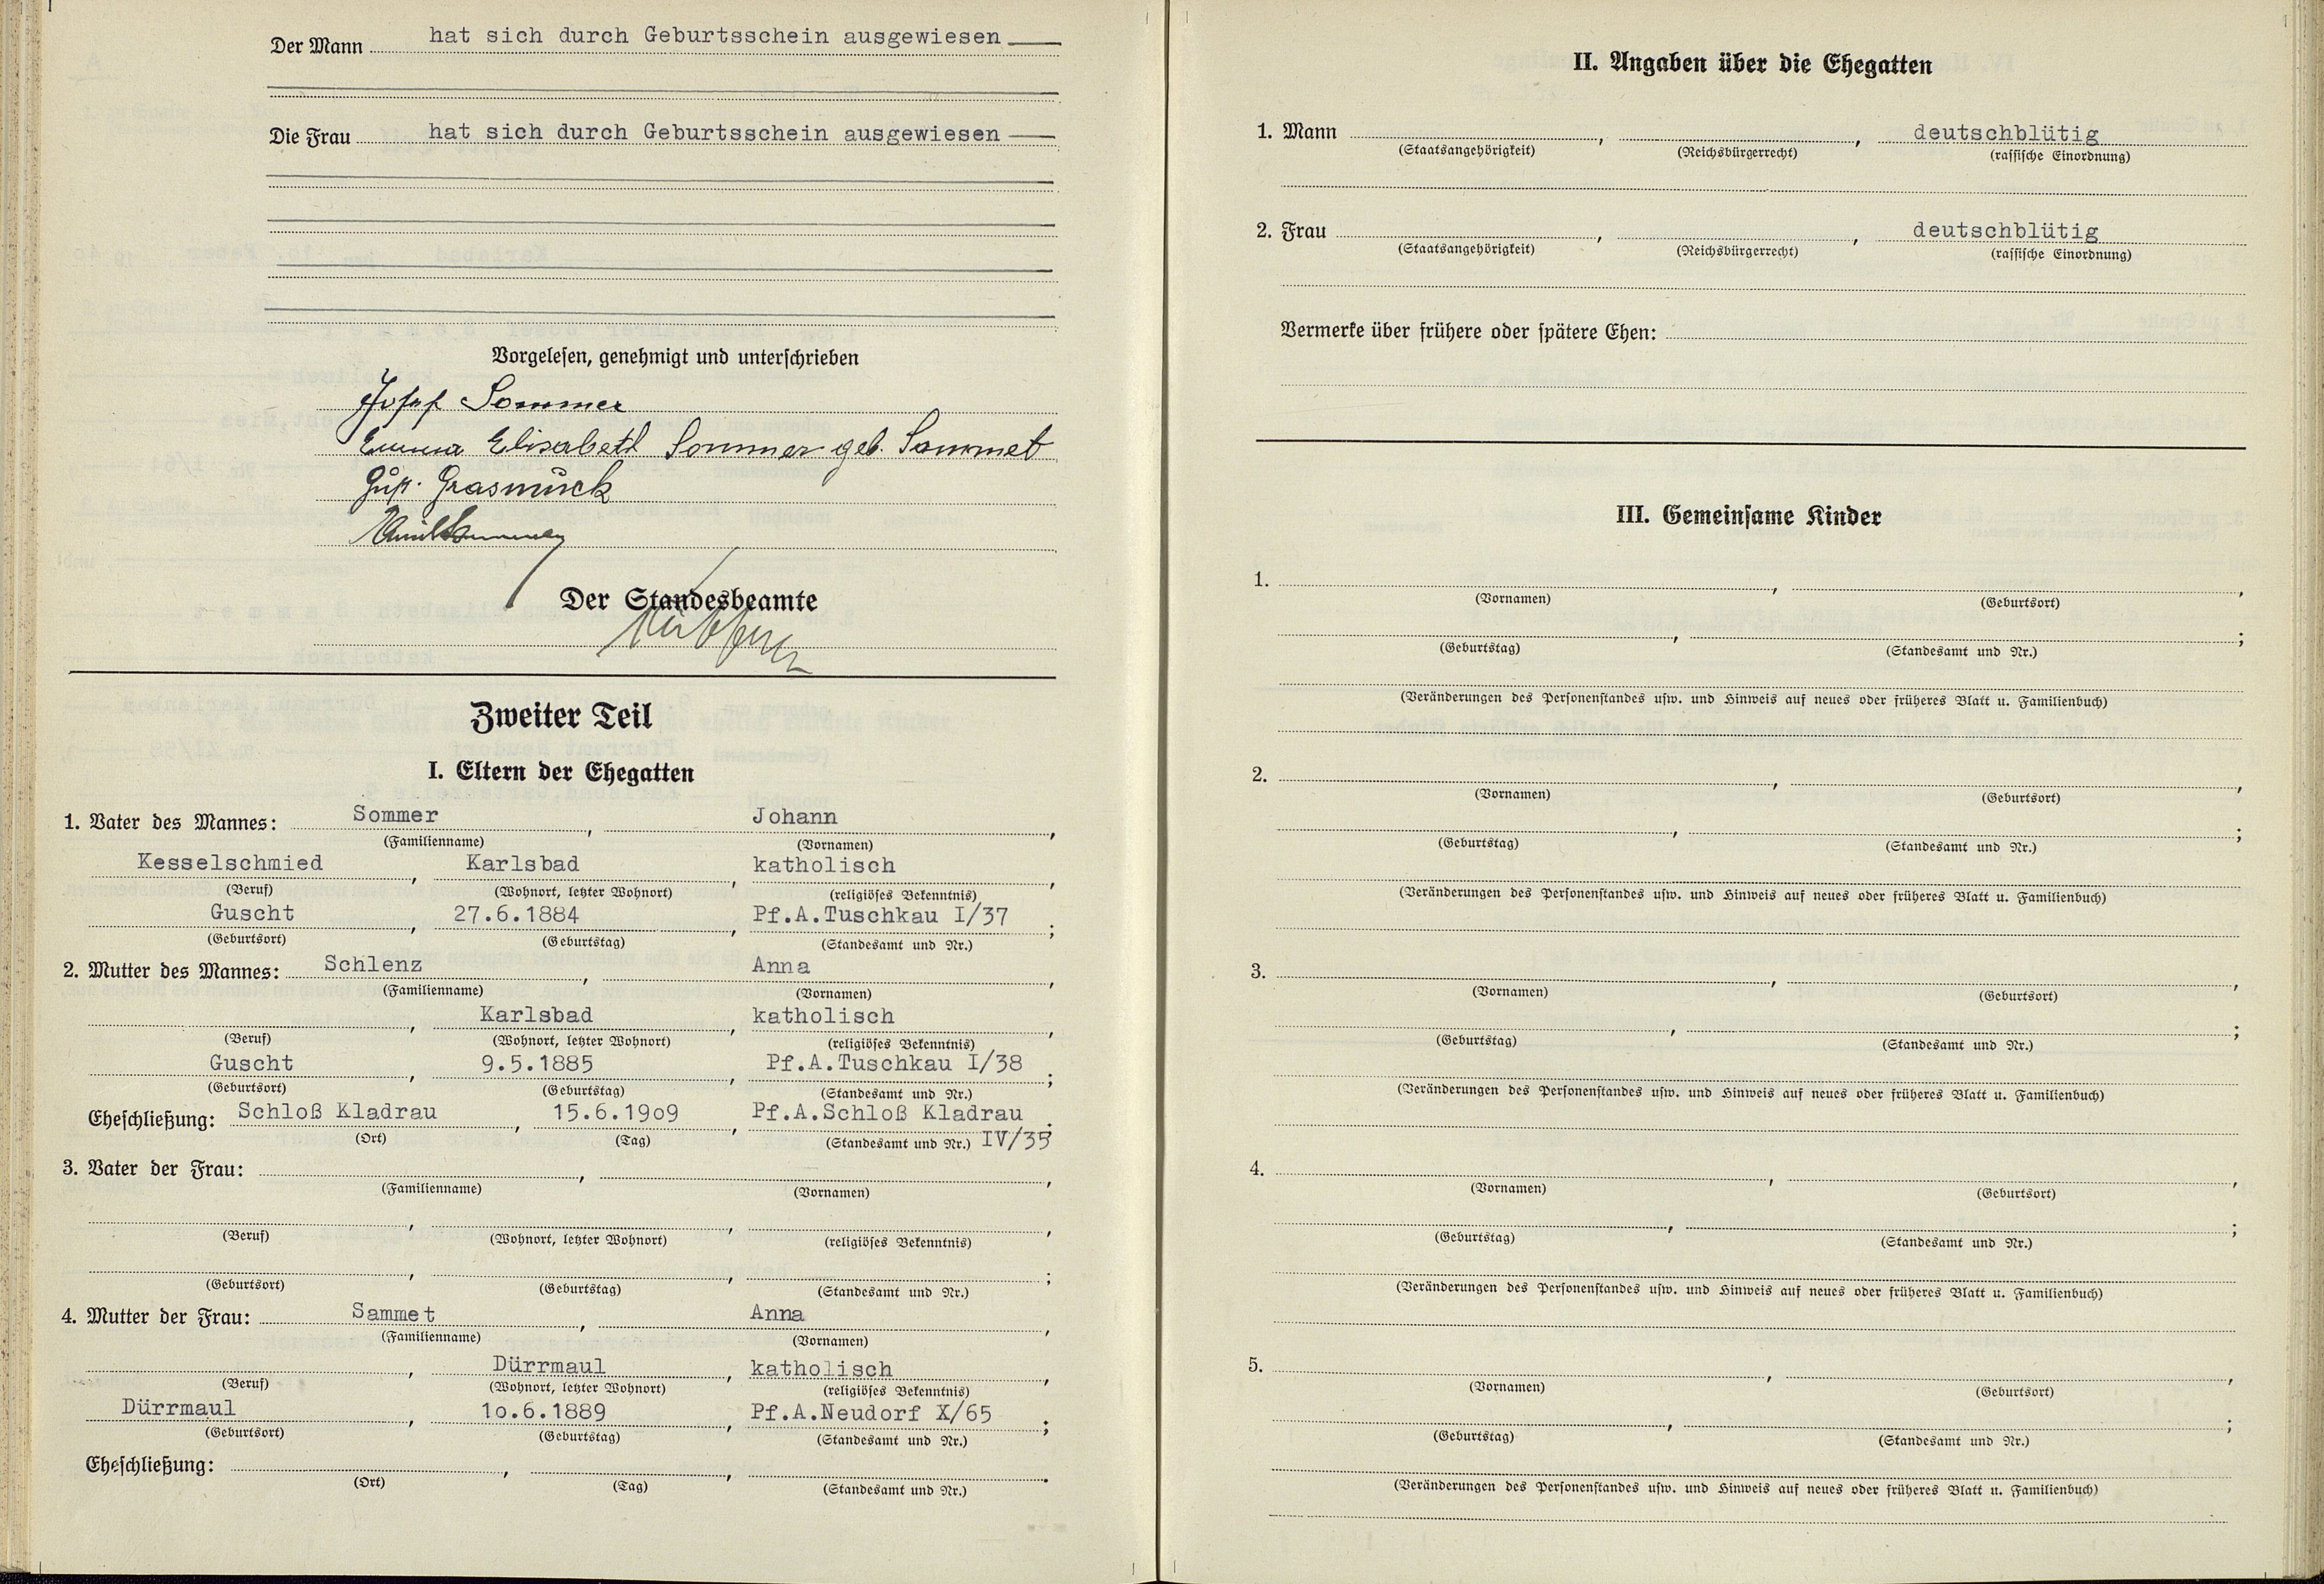 Der Mann hat sich durch Geburtsschein ausgewiesen
Die Frau hat sich durch Geburtsschein ausgewiesen
Vorgelesen, genehmigt und unterschrieben
Josef Sommer
Emma Elisabeth Sommer geb. Sammet
Grasmück
Der Standesbeamte
Zweiter Teil
I. Eltern der Ehegatten
1. Vater des Mannes: Sommer, Johann,
(Familienname) (Vornamen)
Kesselschmied, Karlsbad, katholisch,
(Beruf) (Wohnort, letzter Wohnort) (religiöses Bekenntnis)
Guscht, 27.6.1884, Pf.A.Tuschkau I/37;
(Geburtsort) (Geburtstag) (Standesamt und Nr.)
2. Mutter des Mannes: Schlenz, Anna,
(Familienname) (Vornamen)
, Karlsbad, katholisch,
(Beruf) (Wohnort, letzter Wohnort) (religiöses Bekenntnis)
Guscht, 9.5.1885, Pf.A.Tuschkau I/38;
(Geburtsort) (Geburtstag) (Standesamt und Nr.)
Eheschließung: Schloß Kladrau, 15.6.19o9, Pf.A.Schloß Kladrau.
(Ort) (Tag) (Standesamt und Nr.) IV/35
3. Vater der Frau: , ,
(Familienname) (Vornamen)
, , ,
(Beruf) (Wohnort, letzter Wohnort) (religiöses Bekenntnis)
, , ;
(Geburtsort) (Geburtstag) (Standesamt und Nr.)
4. Mutter der Frau: Sammet, Anna,
(Familienname) (Vornamen)
, Dürrmaul, katholisch,
(Beruf) (Wohnort, letzter Wohnort) (religiöses Bekenntnis)
Dürrmaul, 1o.6.1889, Pf.A.Neudorf X/65;
(Geburtsort) (Geburtstag) (Standesamt und Nr.)
Eheschließung: , , .
(Ort) (Tag) (Standesamt und Nr.)
II. Angaben über die Ehegatten
1. Mann , , deutschblütig
(Staatsangehörigkeit) (Reichsbürgerrecht) (rassische Einordnung)
2. Frau , , deutschblütig
(Staatsangehörigkeit) (Reichsbürgerrecht) (rassische Einordnung)
Vermerke über frühere oder spätere Ehen:
III. Gemeinsame Kinder
1. , ,
(Vornamen) (Geburtsort)
, ;
(Geburtstag) (Standesamt und Nr.)
(Veränderungen des Personenstandes usw. und Hinweis auf neues oder früheres Blatt u. Familienbuch)
2. , ,
(Vornamen) (Geburtsort)
, ;
(Geburtstag) (Standesamt und Nr.)
(Veränderungen des Personenstandes usw. und Hinweis auf neues oder früheres Blatt u. Familienbuch)
3. , ,
(Vornamen) (Geburtsort)
, ;
(Geburtstag) (Standesamt und Nr.)
(Veränderungen des Personenstandes usw. und Hinweis auf neues oder früheres Blatt u. Familienbuch)
4. , ,
(Vornamen) (Geburtsort)
, ;
(Geburtstag) (Standesamt und Nr.)
(Veränderungen des Personenstandes usw. und Hinweis auf neues oder früheres Blatt u. Familienbuch)
5. , ,
(Vornamen) (Geburtsort)
, ;
(Geburtstag) (Standesamt und Nr.)
(Veränderungen des Personenstandes usw. und Hinweis auf neues oder früheres Blatt u. Familienbuch)